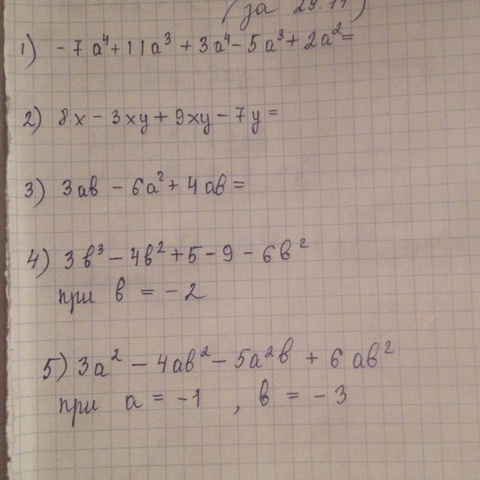 (за 29.11)
1) -7a⁴+11a³+3a⁴-5a³+2a²=
2) 8x-3xy+9xy-7y=
3) 3ab-6a²+4ab=
4) 3b³-4b²+5-9-6b²
при b=-2
5) 3a²-4ab²-5a²b+6ab²
при a=-1, b=-3